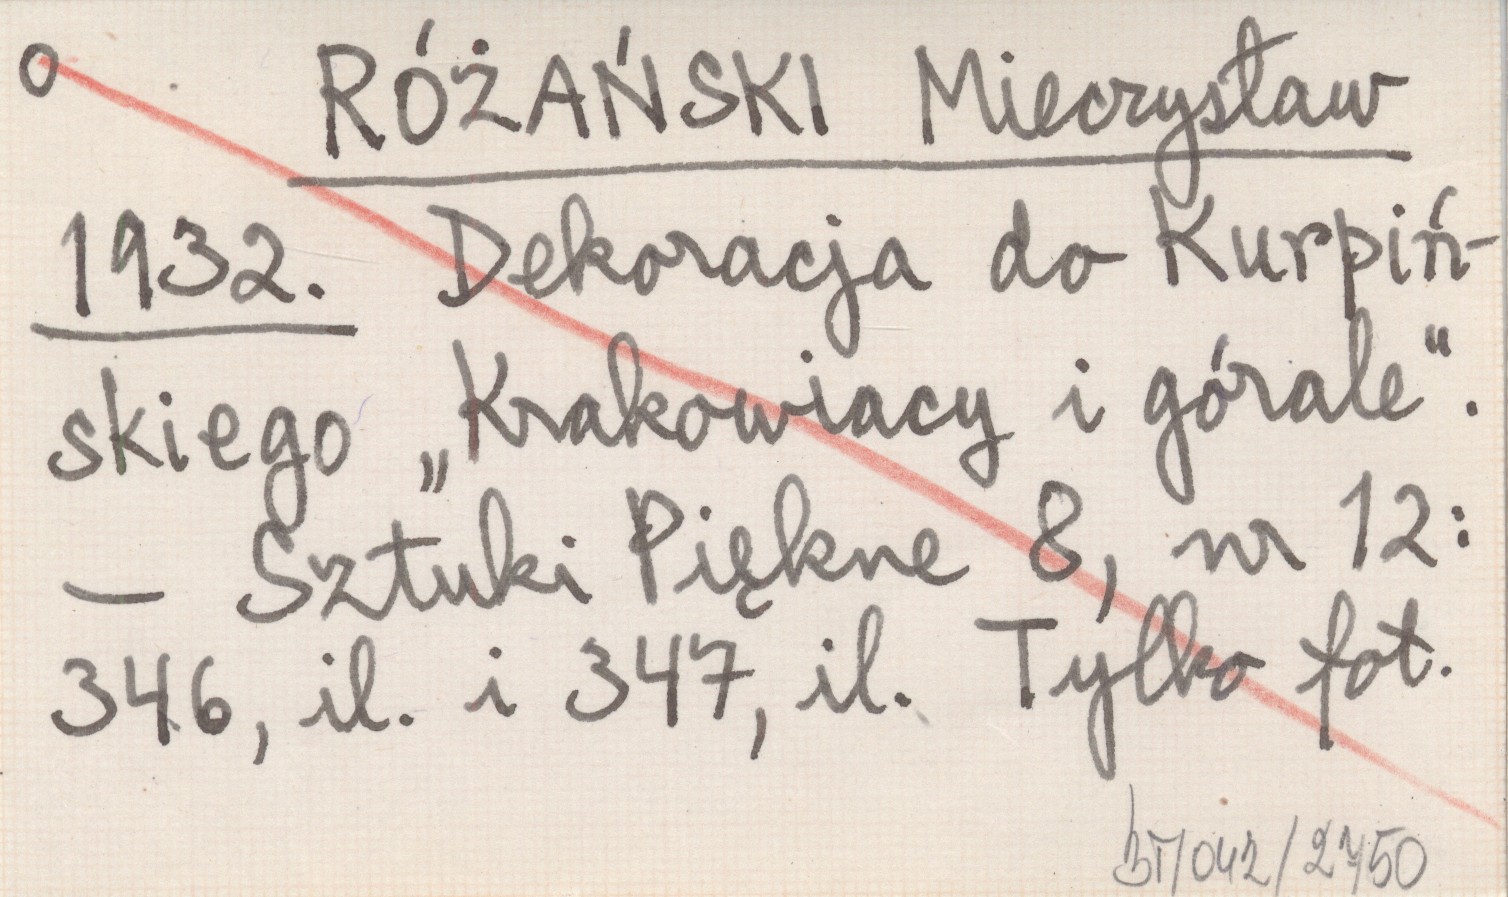 o RÓŻAŃSKI Mieczysław
1932. Dekoracja do Kurpiń-
skiego „Krakowiacy i górale".
— Sztuki Piękne 8, nr 12:
346, il. i 347, il. Tylko fot.
BT/042/2750